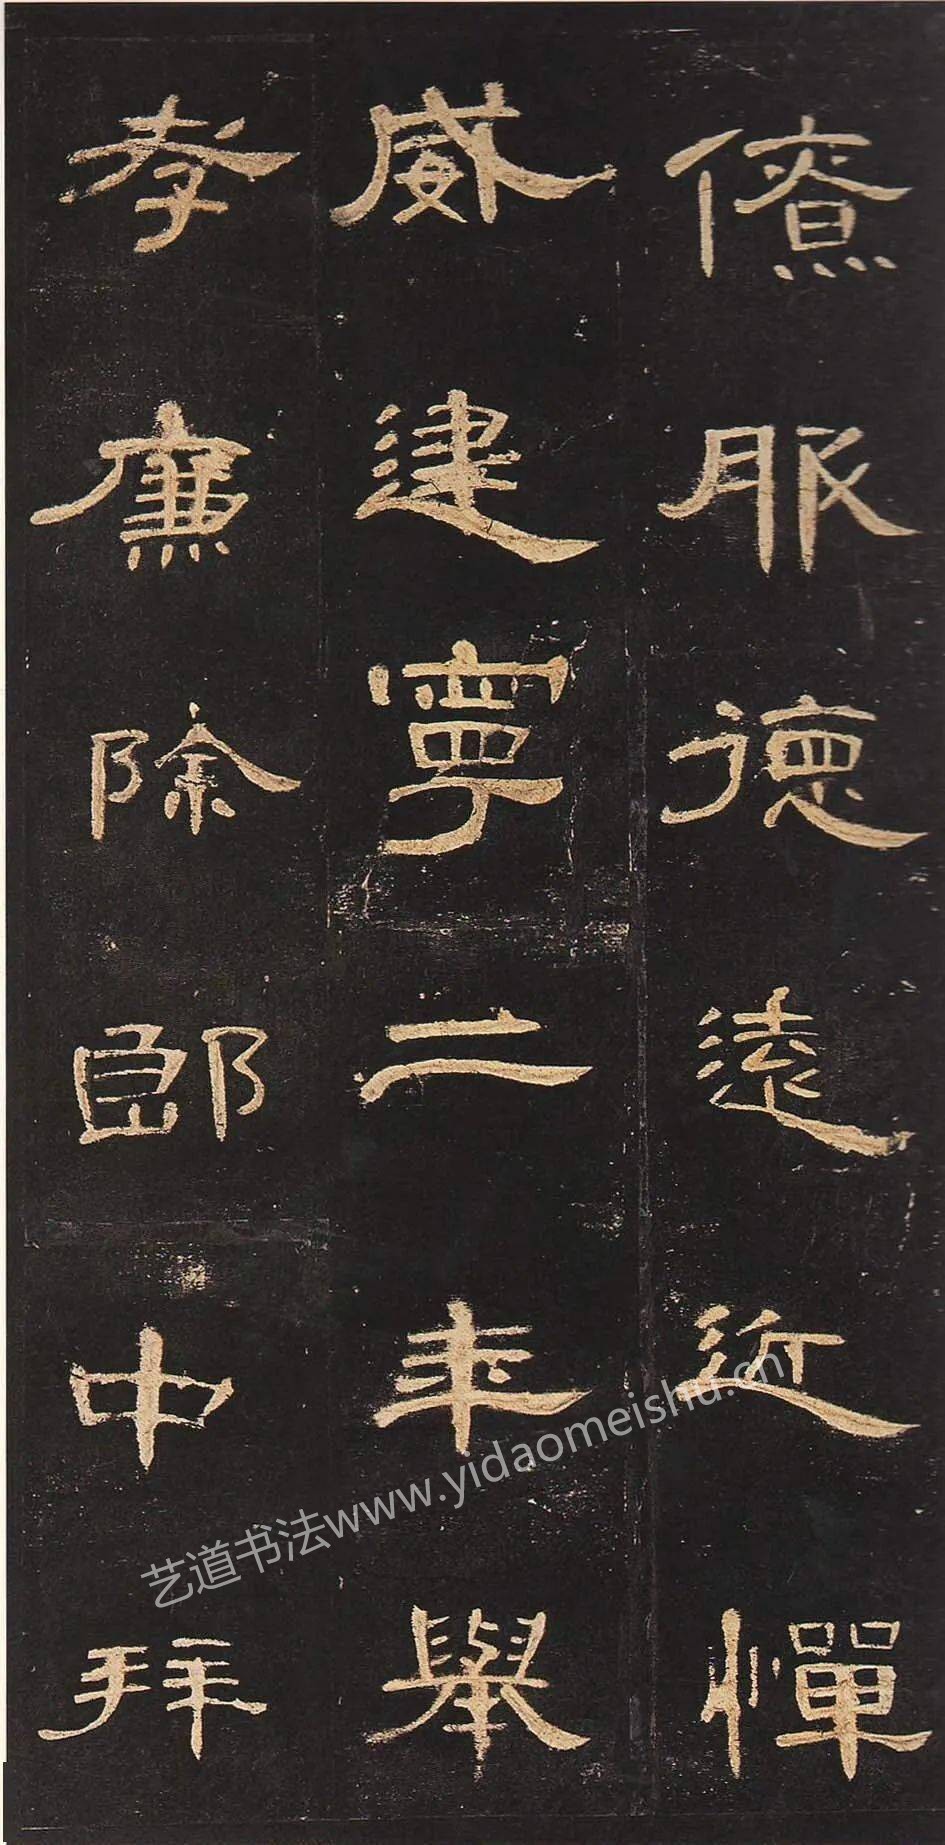 僚服德遠近憚
威建寧二年舉
孝廉除郎中拜
艺道书法www.yidaomeishu.cn